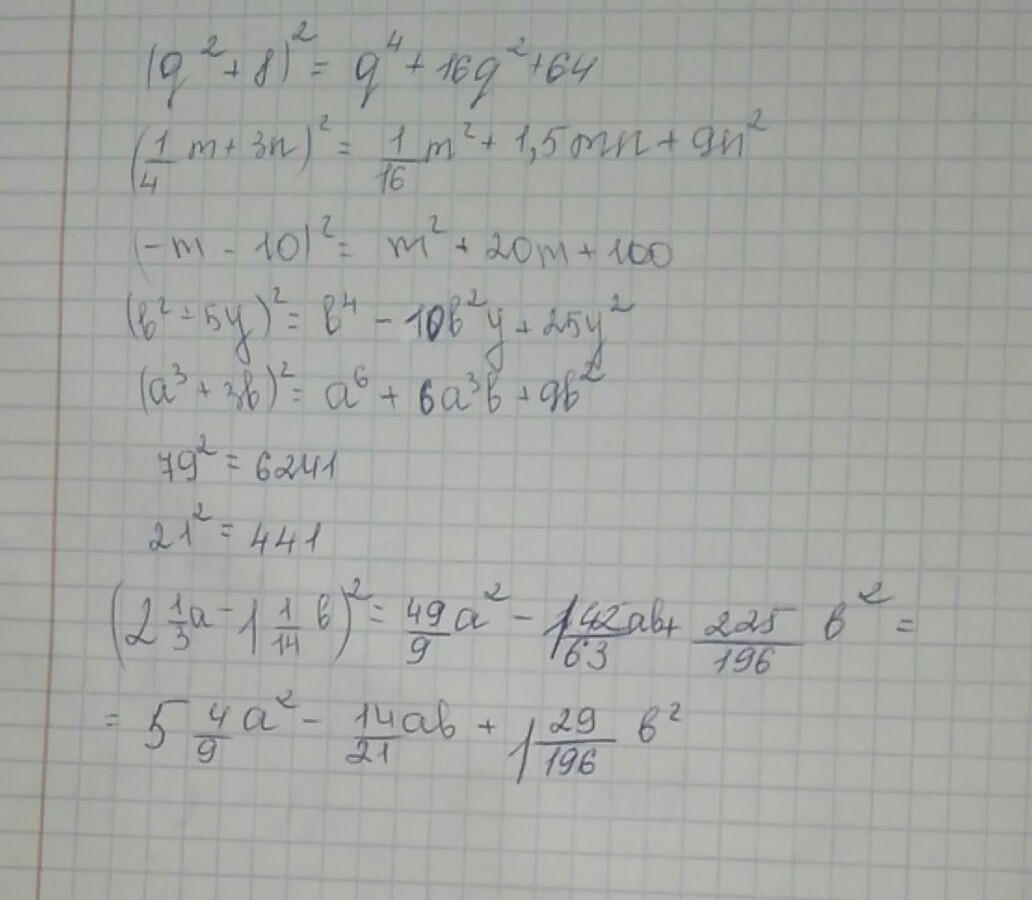 (q² + 8)² = q⁴ + 16q² + 64
(1/4 m + 3n)² = 1/16 m² + 1,5mn + 9n²
(-m - 10)² = m² + 20m + 100
(в² - 5y)² = в⁴ - 10в²y + 25y²
(a³ + 3в)² = a⁶ + 6a³в + 9в²
79² = 6241
21² = 441
(2 1/3 a - 1 1/14 в)² = 49/9 a² - 1 42/63 aв + 225/196 в² =
= 5 4/9 a² - 14/21 aв + 1 29/196 в²